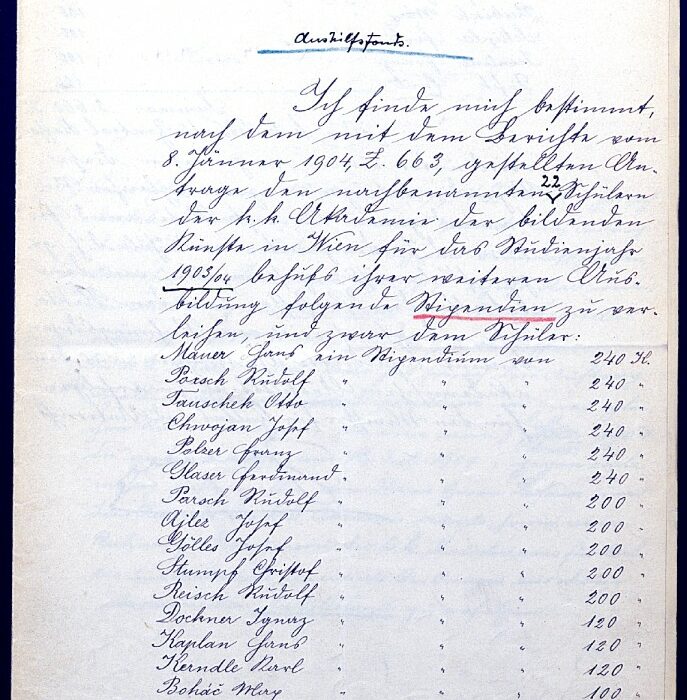 Aushilfsfonds.
Ich finde mich bestimmt,
nach dem mit dem Berichte vom
8. Jänner 1904, Z. 663, gestellten An-
trage den nachbenannten 22 Schülern
der k.k. Akademie der bildenden
Künste in Wien für das Studienjahr
1903/04 behufs ihrer weiteren Aus-
bildung folgende Stipendien zu ver-
leihen, und zwar dem Schüler:
Mauer Hans ein Stipendium von 240 K.
Porsch Rudolf " " " 240 "
Tauschek Otto " " " 240 "
Chwojan Josef " " " 240 "
Polzer Franz " " " 240 "
Glaser Ferdinand " " " 240 "
Parsch Rudolf " " " 200 "
Ajler Josef " " " 200 "
Gölles Josef " " " 200 "
Stumpf Christof " " " 200 "
Reisch Rudolf " " " 200 "
Dochner Ignaz " " " 120 "
Kaplan Hans " " " 120 "
Kerndle Karl " " " 120 "
Boháč Max " " " 100 "